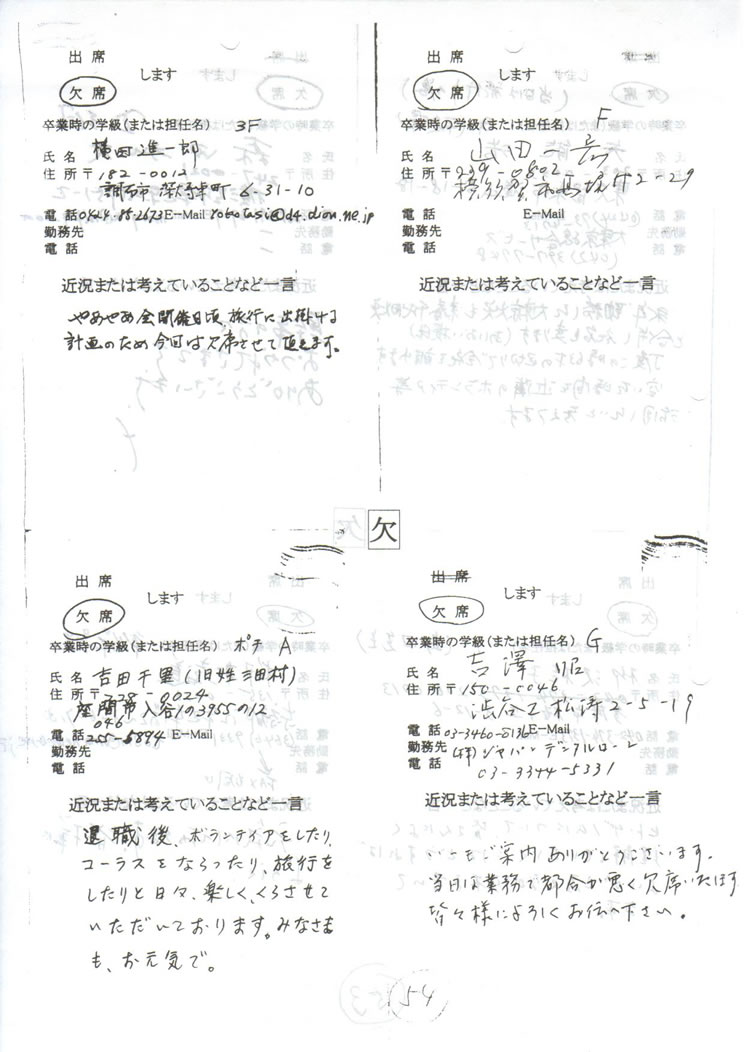 出 席
欠 席
します
卒業時の学級(または担任名) 3F
氏 名 横田進一郎
住 所 〒182-0012
調布市 深大寺東町 6-31-10
電 話0424-85-2673 E-Mail yokotasi@d4.dion.ne.jp
勤務先
電 話
近況または考えていることなど一言
やあやあ会開催日頃、旅行に出掛ける
計画のため今回は欠席させて頂きます。
出 席
欠 席
します
卒業時の学級(または担任名) F
氏 名 山田一
住 所 〒239-0802
横須賀市馬堀町2-29
電 話 E-Mail
勤務先
電 話
近況または考えていることなど一言
欠
出 席
欠 席
します
卒業時の学級(または担任名) ポチ A
氏 名 吉田千里(旧姓三田村)
住 所 〒228-0024
座間市入谷1の3955の12
電 話 046 255-5894 E-Mail
勤務先
電 話
近況または考えていることなど一言
退職後、ボランティアをしたり、
コーラスをならったり、旅行を
したりと日々、楽しく、くらさせて
いただいております。みなさま
も、お元気で。
出 席
欠 席
します
卒業時の学級(または担任名) G
氏 名 吉澤 昭
住 所 〒150-0046
渋谷区松涛2-5-19
電 話 03-3460-5136 E-Mail
勤務先 (株)ジャパンデンタル
電 話 03-3344-5331
近況または考えていることなど一言
いつもご案内ありがとうございます。
当日は業務で都合が悪く欠席いたします
皆々様によろしくお伝へ下さい。
54